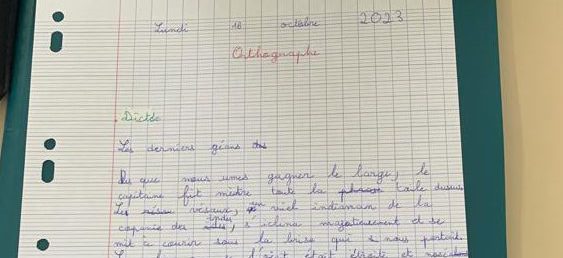 Lundi 16 octobre 2023
Orthographe
Dictée
Les derniers géans
Des que nous umes gagner le large, le
capitane fit metre toute la toile dessus
Le vieil indiaman de la
capanie des Indes, s'inclina majesteusement et se
mit à courir sous la brise qui nous portait.
était étroite et